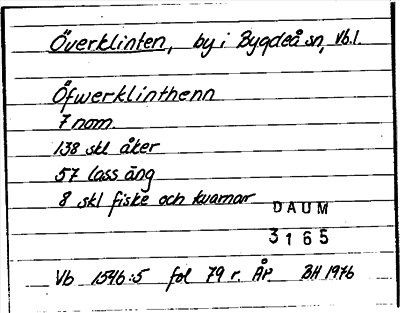 Överklinten, by i Bygdeå sn, Vb.l.
Öfwerklinthenn
7 nom.
138 skl åker
57 lass äng
8 skl fiske och kvarnar
DAUM
3165
Vb 1546:5 fol 79 r. ÅP. BH 1976